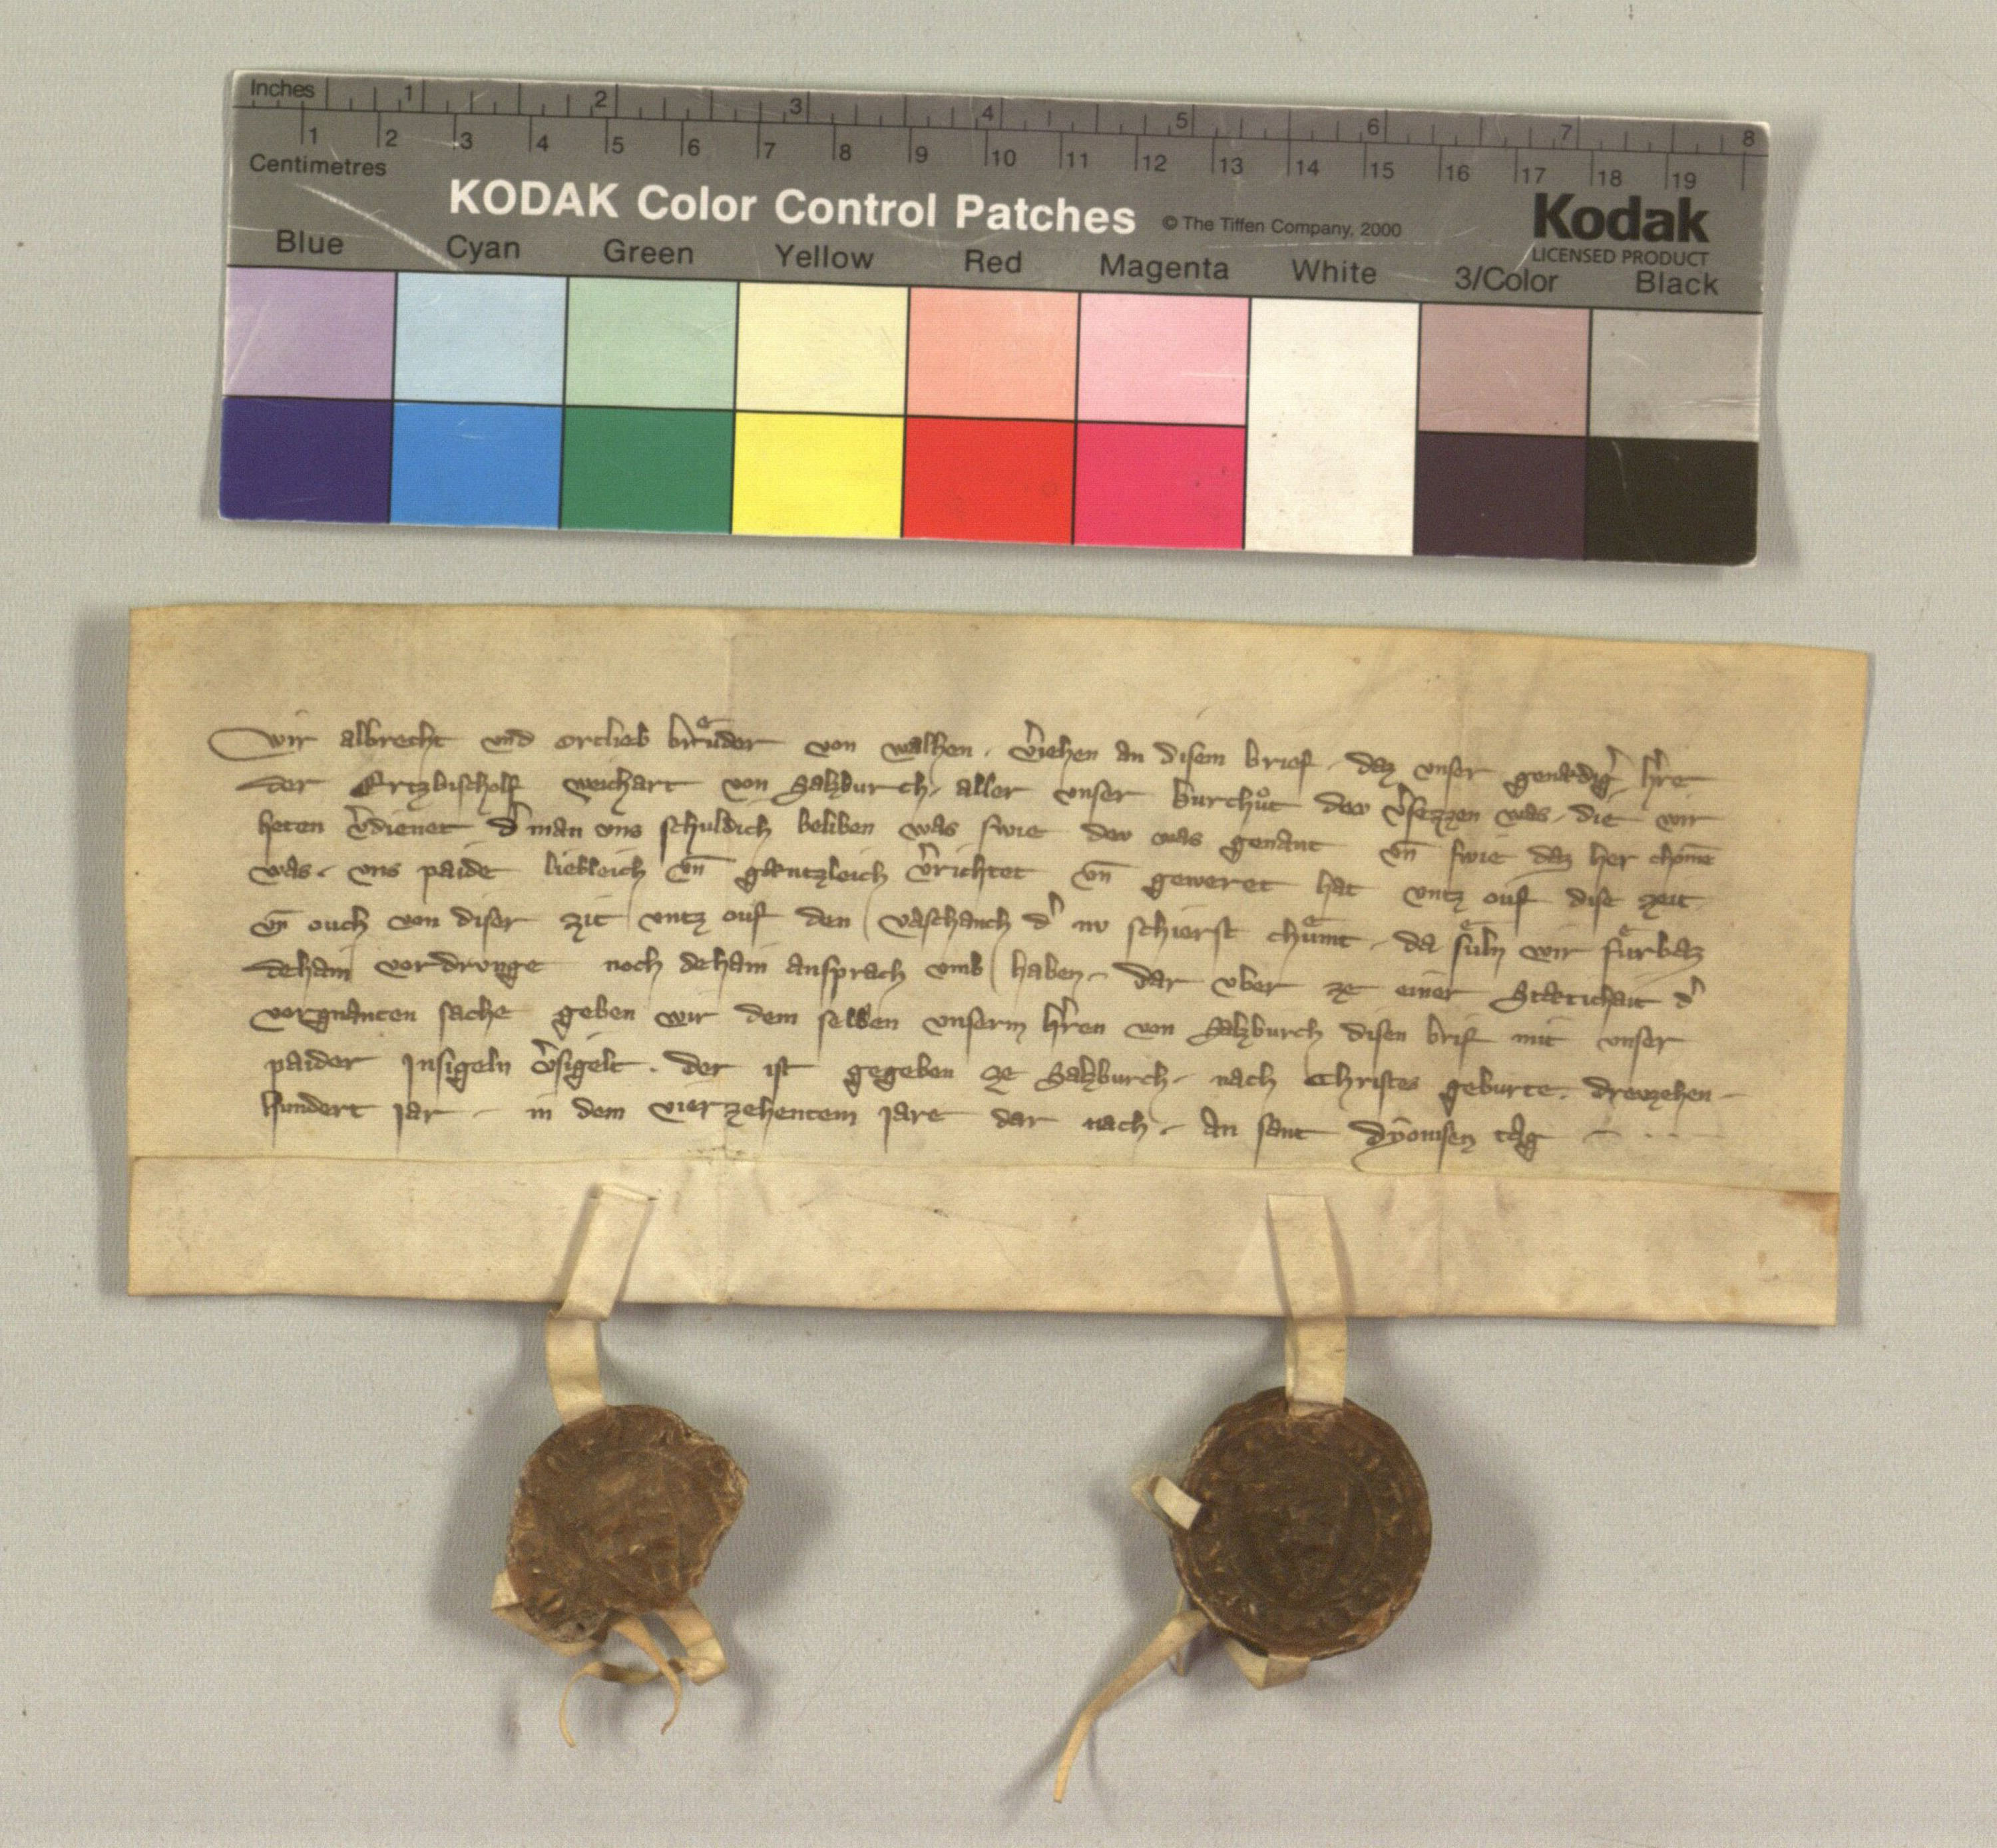 Inches 1 2 3 4 5 6 7 8
1 2 3 4 5 6 7 8 9 10 11 12 13 14 15 16 17 18 19
Centimetres
KODAK Color Control Patches © The Tiffen Company, 2000 Kodak
LICENSED PRODUCT
Blue Cyan Green Yellow Red Magenta White 3/Color Black
Wir albrecht vnd ortlieb brůder von walhen . v͛iehen an disem brief . daz vnser genædig͛ h͛re
der Ertzbischolf weichart von Salzburch . aller vnser burchůt dev v͛sezzen was . die wir
heten v͛dienet d͛ man vns schuldich beliben was swie dev was genant vn̄ swie daz her chome̅
was . vns paide liebleich vn̄ gæntzleich v͛richtet vn̄ geweret hat vntz ouf dise zeit
vn̄ ouch von diser zit vntz ouf den vaschanch d͛ nv schierst chuͤmt . da suͤln wir fuͤrbaz
dehain vordrvnge noch dehain ansprach vmb haben . dar vber ze einer Stætichait d͛
vorgnanten sache geben wir dem selben vnserm h͛ren von Salzburch disen brif mit vnser
paider Insigeln v͛sigelt . der ist gegeben ze Salzburch . nach Christes geburte . drevzehen
hundert jar . in dem vierzehentem jare dar nach . An sant Dyonisen tag